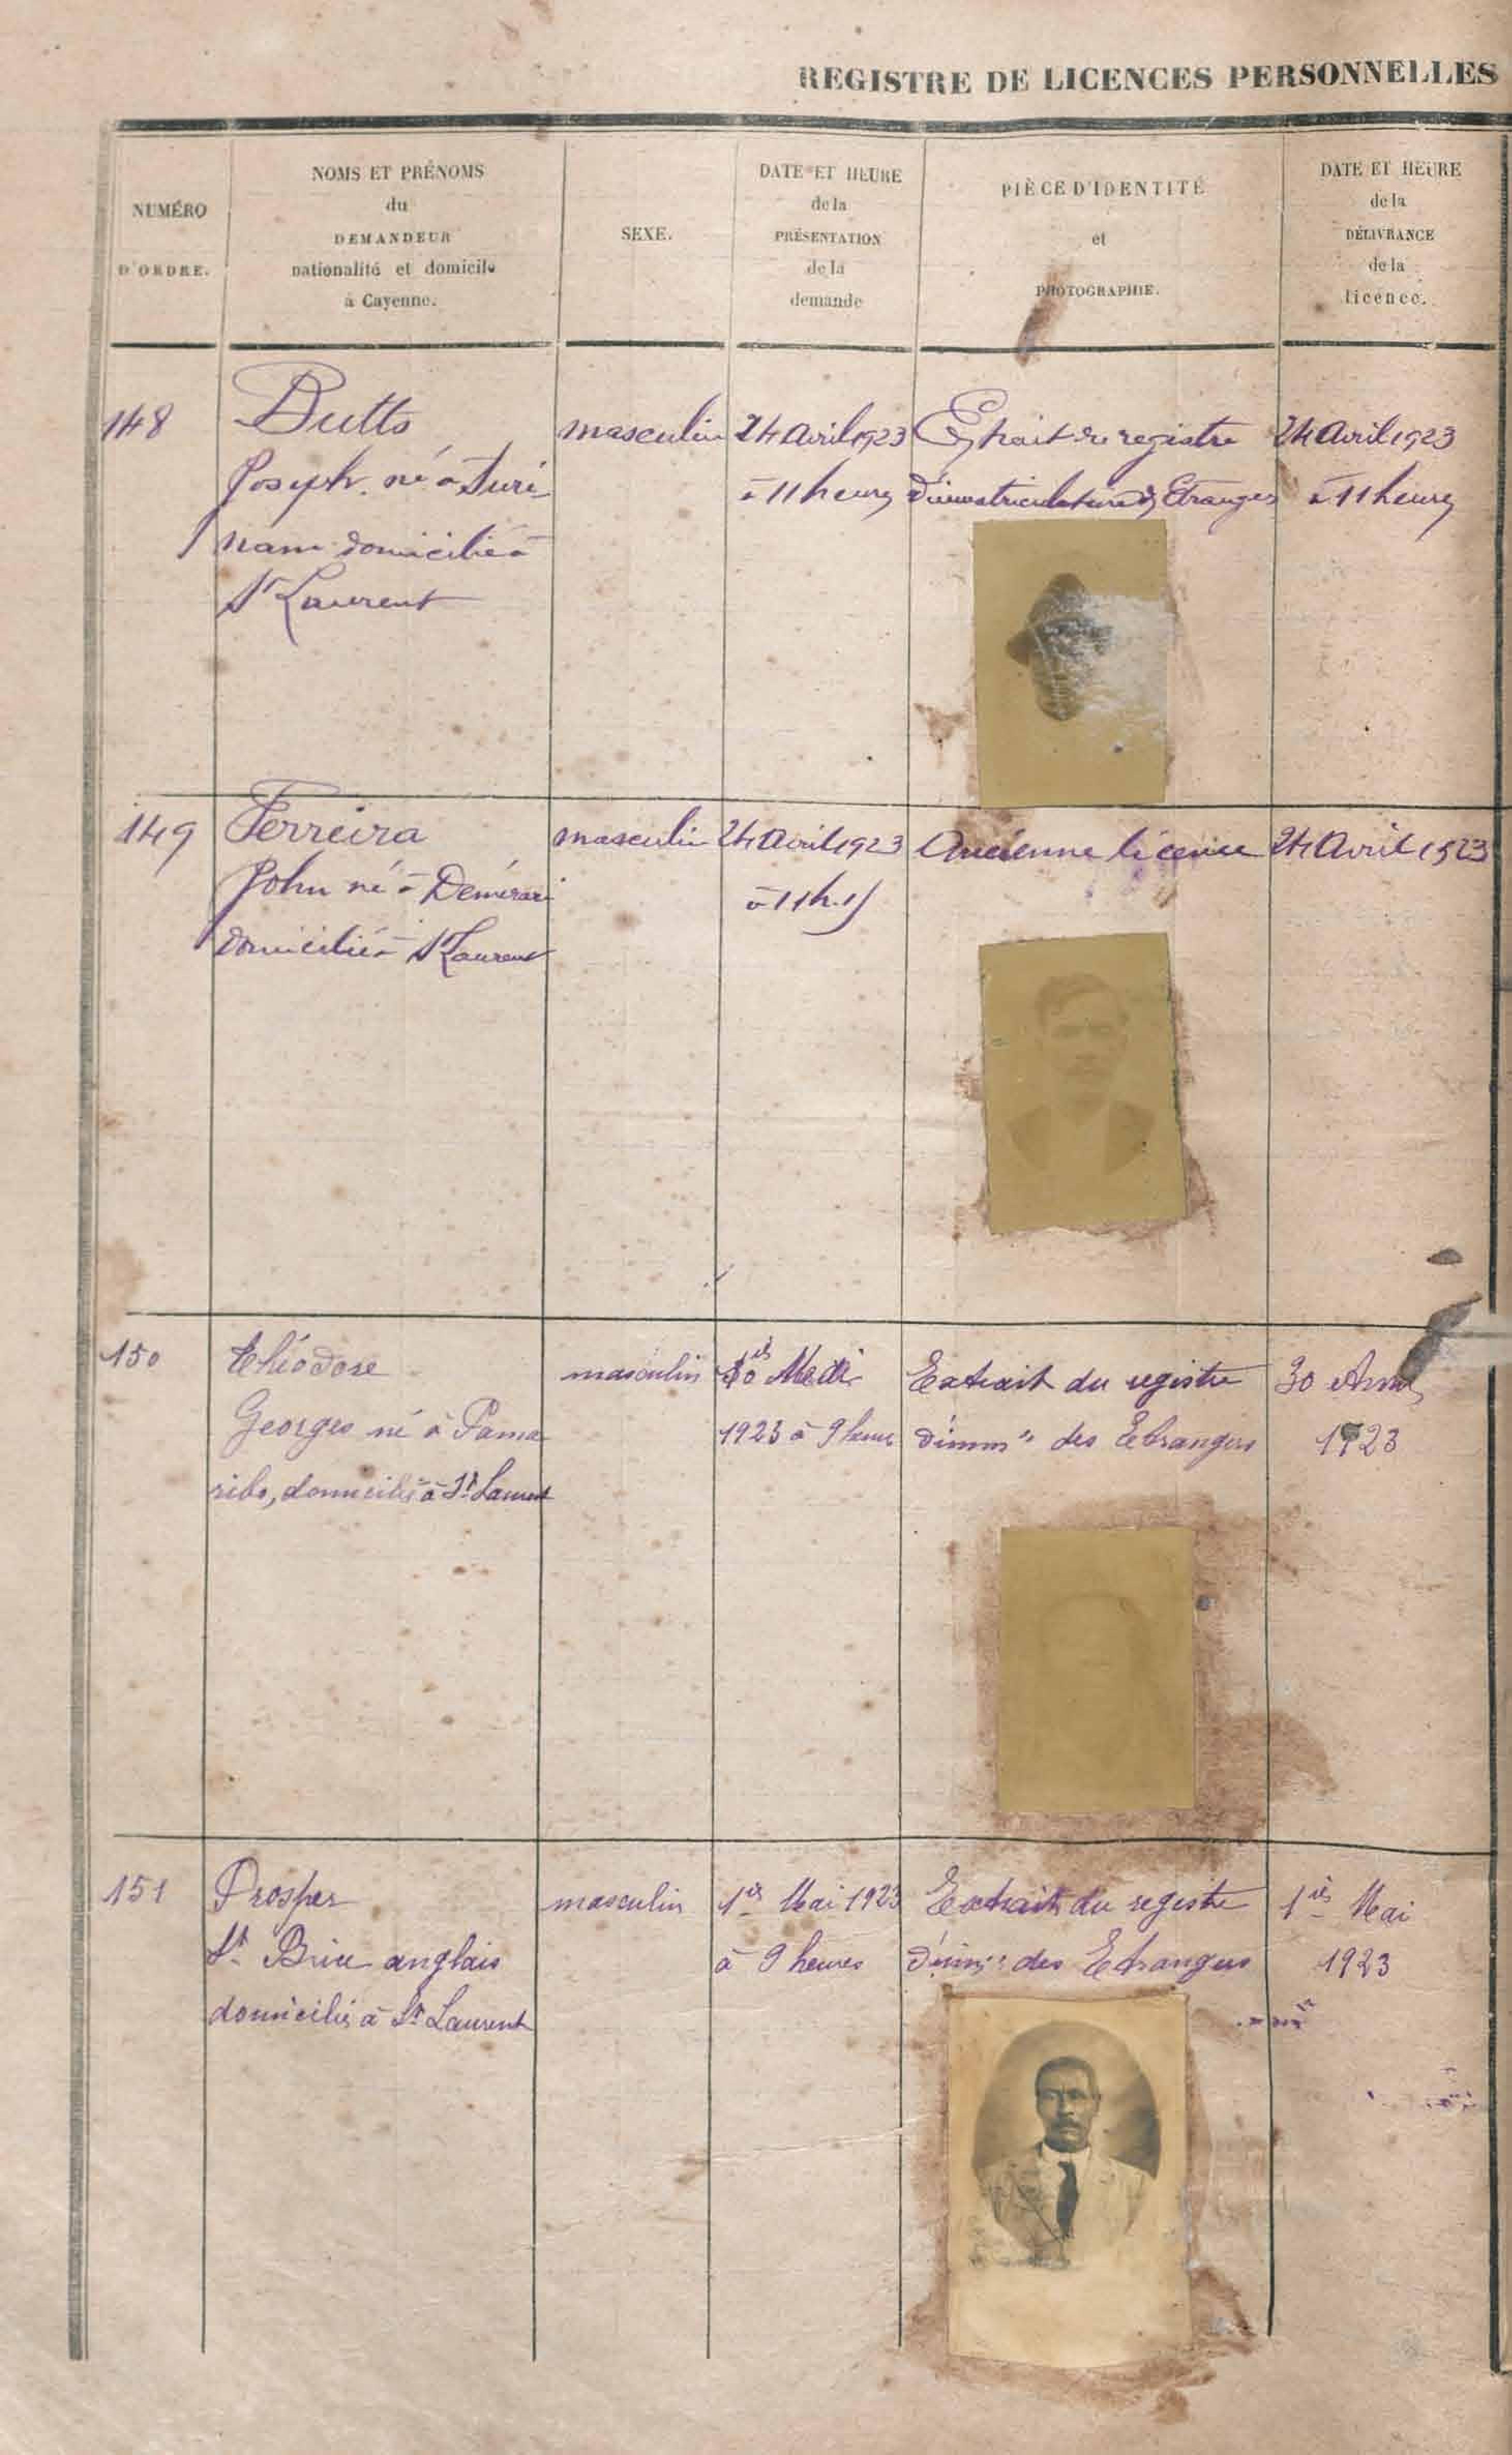 REGISTRE DE LICENCES PERSONNELLES
NUMÉRO
D'ORDRE.
NOMS ET PRÉNOMS
du
DEMANDEUR
nationalité et domicile
à Cayenne.
SEXE.
DATE ET HEURE
de la
PRÉSENTATION
de la
demande
PIÈCE D'IDENTITÉ
et
PHOTOGRAPHIE.
DATE ET HEURE
de la
DÉLIVRANCE
de la
licence.
148
Butts
Joseph. né à Suri
nam domicilié à
St Laurent
masculin
24 Avril 1923
à 11 heures
Extrait du registre
d'immatriculation des Etrangers
24 Avril 1923
à 11 heures
149
Ferreira
John né à Demérari
domicilié à St Laurent
masculin
24 Avril 1923
à 11 h.
Ancienne licence
24 Avril 1923
150
théodore
Georges né à Pama
ribo, domicilié à St Laurent
masculin
1923 à 9 heures
Extrait du registre
d'imm on des Etrangers
30
1923
151
Prosper
St. Brice anglais
domicilié à St Laurent
masculin
1er Mai 1923
à 9 heures
Extrait du registre
d'imm on des Etrangers
1er Mai
1923